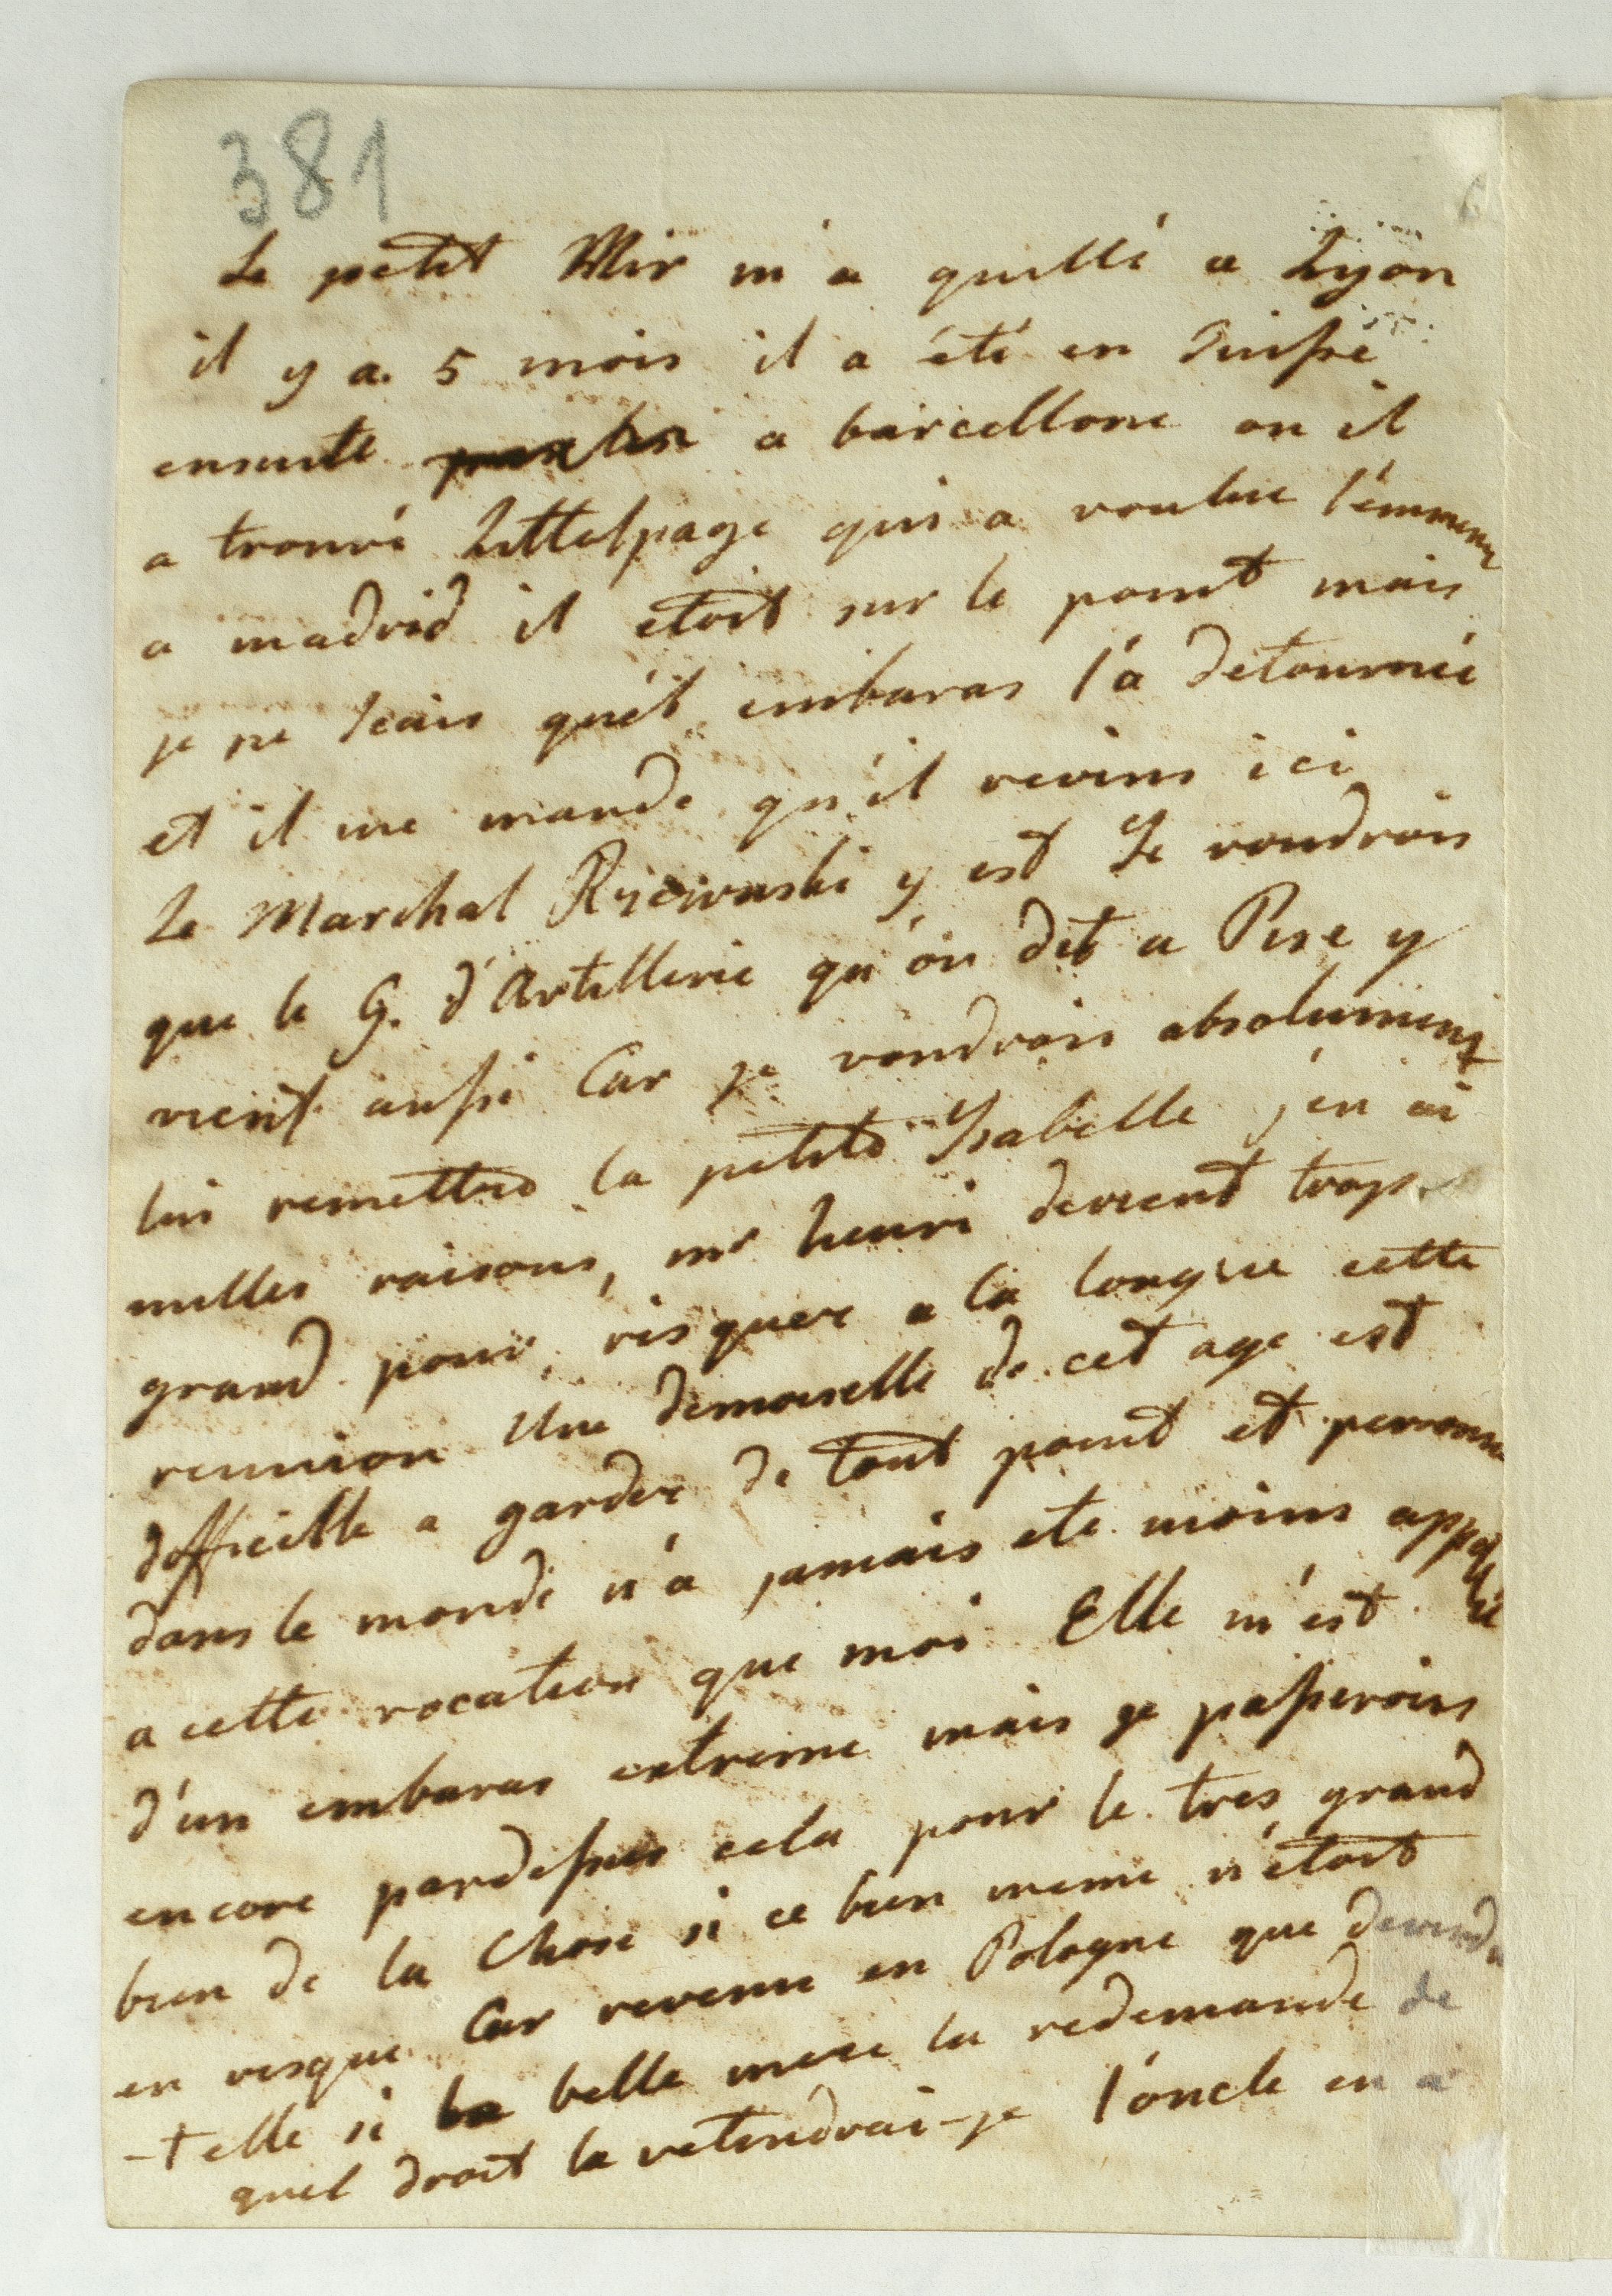 381
Le petit Mir m'a quitté a Lyon
il y a 5 mois il a été en Suisse
ensuite a barcellone ou il
a trouvé Littelpage qui a voulue l'emmener
a madrid il etoit sur le point mais
je ne scais quél embaras l'a detournée
et il me mande qu'il reviens ici
Le Marchal Rzewuski y est Je voudrois
que le G. d'Artillerie qu'on dit a Pise y
vient aussi Car je voudrois absolument
lui remettre la petite Isabelle j'en ai
milles raisons, mr henri devient trop
grand pour risquer a la longue cette
reunion Une demoiselle de cet age est
difficille a garder de tout point et personne
dans le monde n'a jamais ete moins appellée
a cette vocation que moi Elle m'est
d'un embaras extreme mais je passerois
encore pardessus cela pour le tres grand
bien de la Chose si ce bien meme n'étoit
en risque Car revenue en Pologne que deviendra
-t elle si la belle mere la redemande de
quel droit la retiendrai-je l'oncle en a